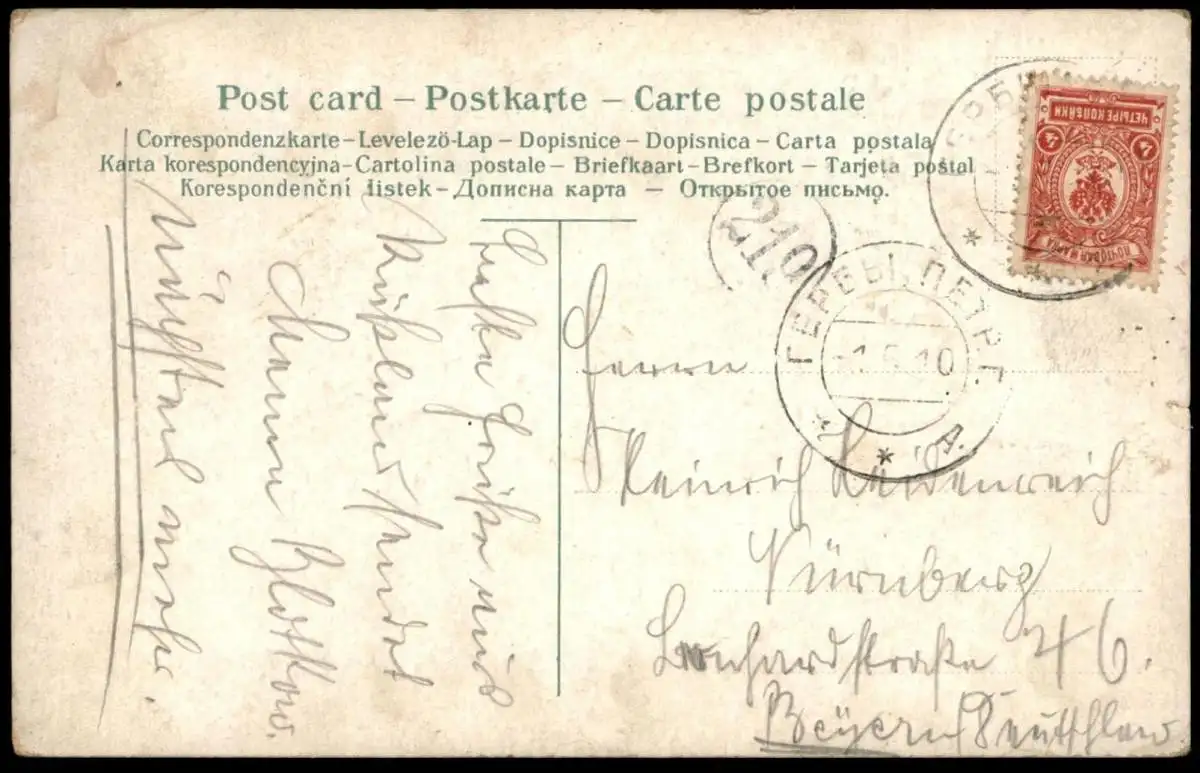 Post card – Postkarte – Carte postale
Correspondenzkarte – Levelező-Lap – Dopisnice – Dopisnica – Carta postala
Karta korespondencyjna – Cartolina postale – Briefkaart – Brefkort – Tarjeta postal
Korespondenční listek – Дописна карта – Открытое письмо.
ЧЕТЫРЕ КОПѢЙКИ
4 4
ПОЧТОВАЯ МАРКА
210
ГЕРБЫ, ПЕТРГ.
10
А.
Herrn
Heinrich Heidenreich
Nürnberg
Leonhardstraße 46.
Beyern Deuttschland
aus
Rußland sendet
nächstens mehr.